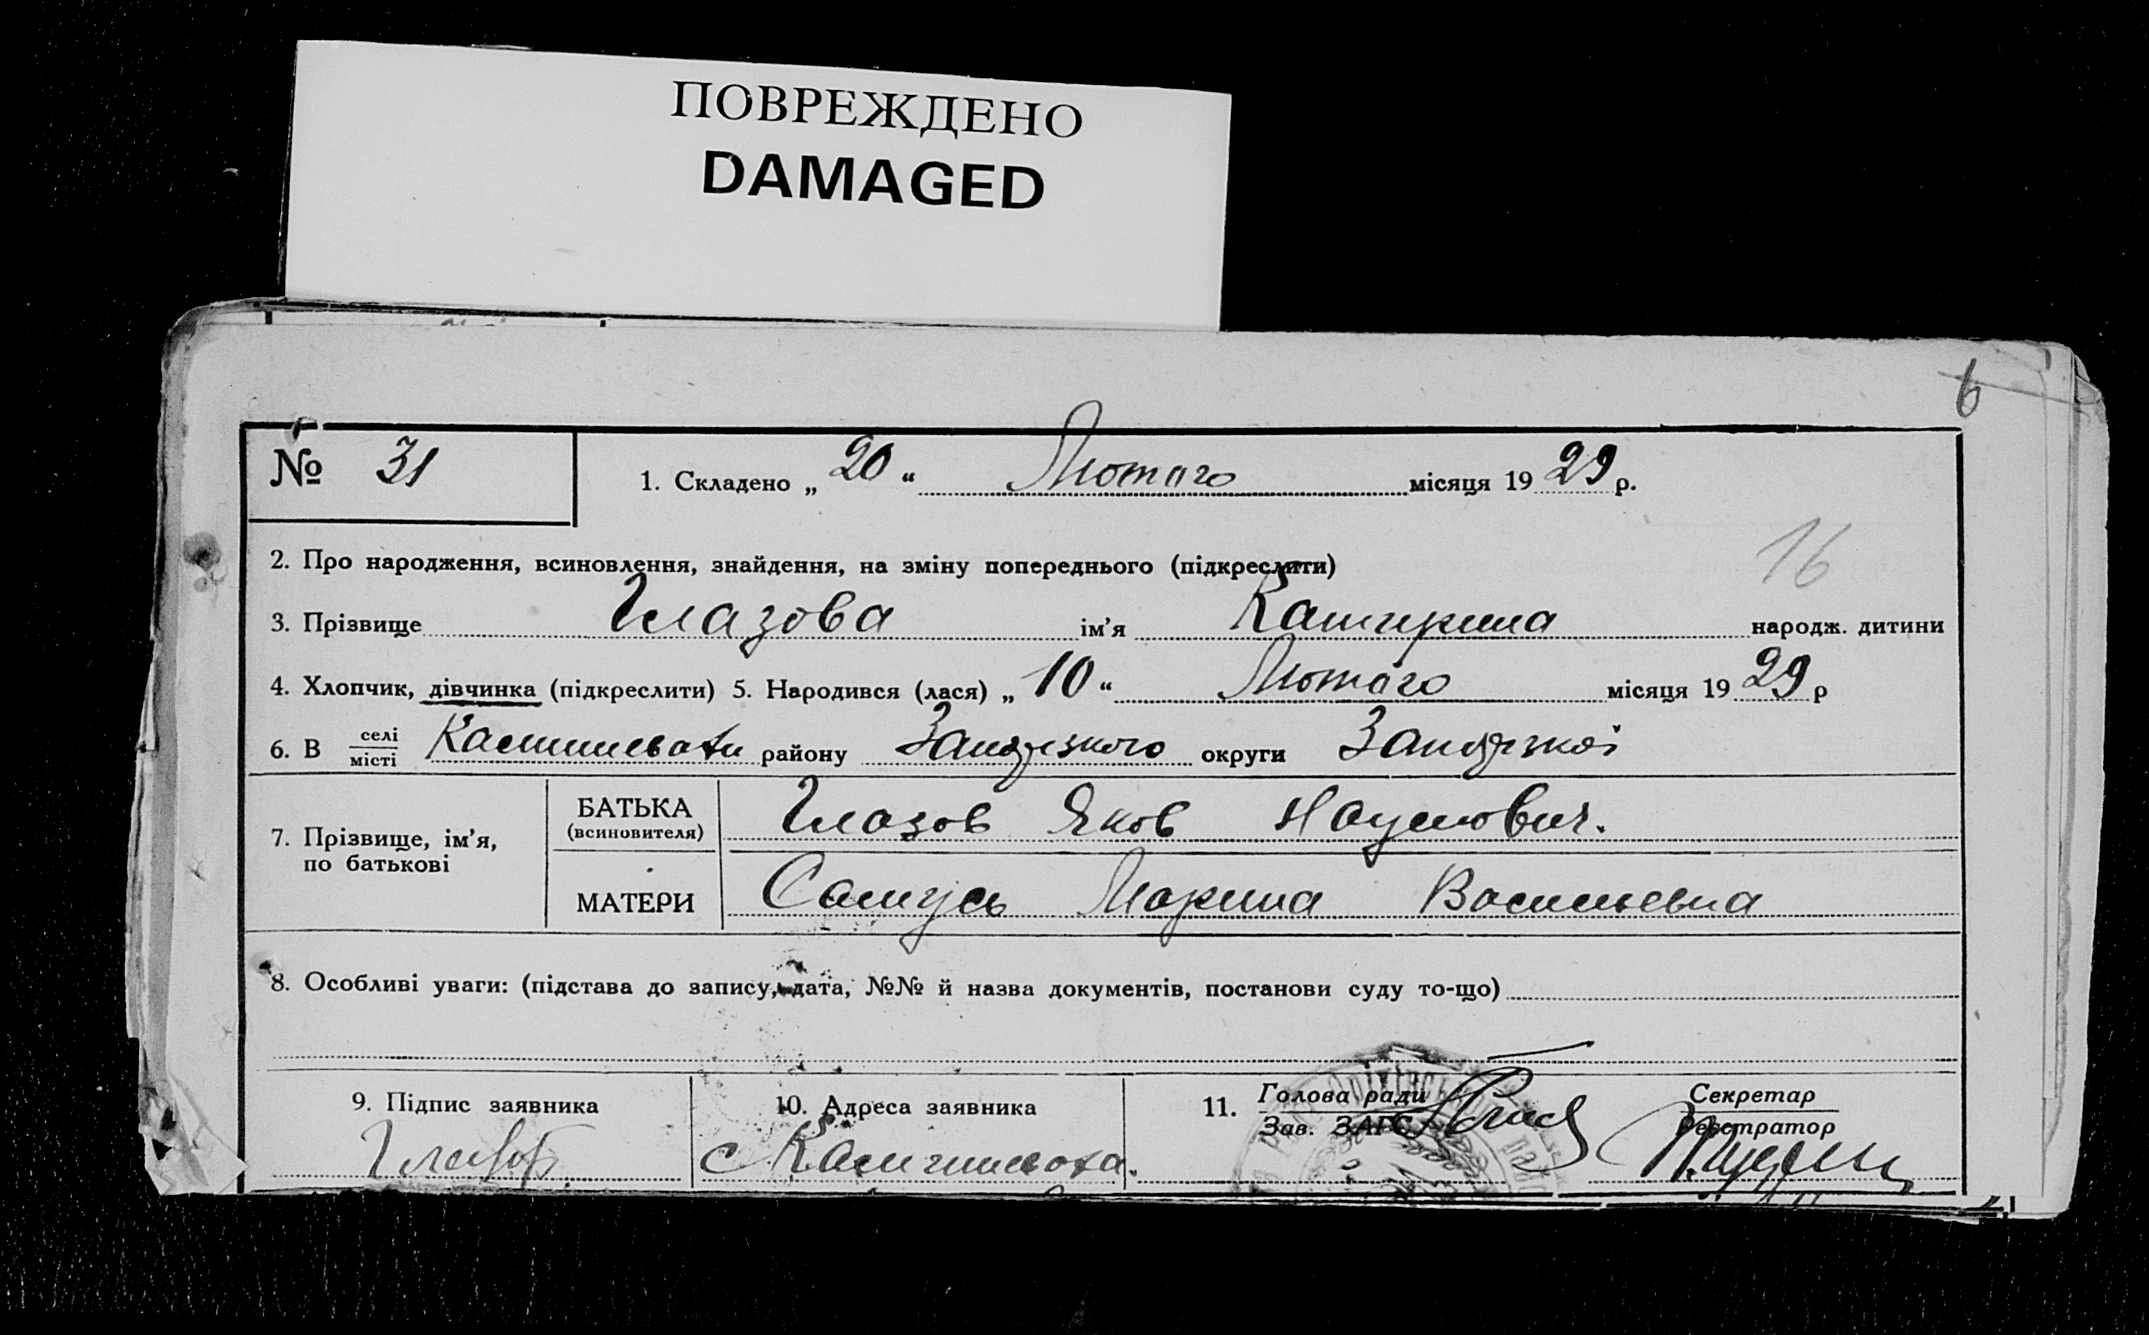 ПОВРЕЖДЕНО
DAMAGED
6
№ 31
1. Складено „ 20 “ Лютаго місяця 19 29 р.
16
2. Про народження, всиновлення, знайдення, на зміну попереднього (підкреслити)
3. Прізвище Глазова ім’я Катирина народж. дитини
4. Хлопчик, дівчинка (підкреслити) 5. Народився (лася) „ 10 “ Лютаго місяця 19 29 р
6. В селі місті району округи
7. Прізвище, ім’я, по батькові
БАТЬКА (всиновителя) Глазов Яков Наумович.
МАТЕРИ Самусь Марина Васильевна
8. Особливі уваги: (підстава до запису, дата, №№ й назва документів, постанови суду то-що)
9. Підпис заявника
Глазов
10. Адреса заявника
с
11. Голова ради
Зав. ЗАГС
Секретар
Реєстратор